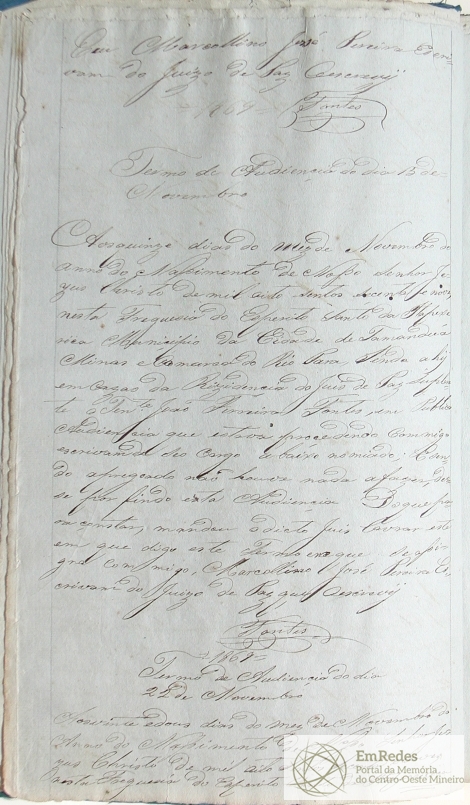 Eu Marcollino José Pereira Escri
vam do Juizo de Paz Oescrevy
Fontes
-1869-
Termo de Audiencia do dia 15 de
Novembro
Aosquinze dias do mez de Novembro do
anno do Nascimento de Nosso Senhor Je
zus Christo de mil oito sentos secenta e nove
nesta Freguesia do Espirito Santo da Itapece
rica Municipio da Cidade de Tamanduá
Minas e Comarca do Rio Para
em cazas da Rezidencia do Juis de Paz Suplen
te João Ferreira Fontes, em Publica
Audiencia que estava procedendo Commigo
escrivam do seo cargo abaixo nomiado; Com
do apregoado não houve nada a
se por findo esta Audiencia Doque para
constar, mandou o dicto Juis lavrar este
em que digo este Termo emque de assi
gna commigo, Marcollino José Pereira Es
crivam do Juizo de Paz que Oescrevy
Fontes
-1869-
Termo de Audiencia do dia
22 de Novembro
Aosvinte edous dias do mez de Novembro do
Anno do Nascimento de
zus Christo de mil oito
nesta Freguesia do Espirito
EmRedes
Portal da Memória
do Centro-Oeste Mineiro